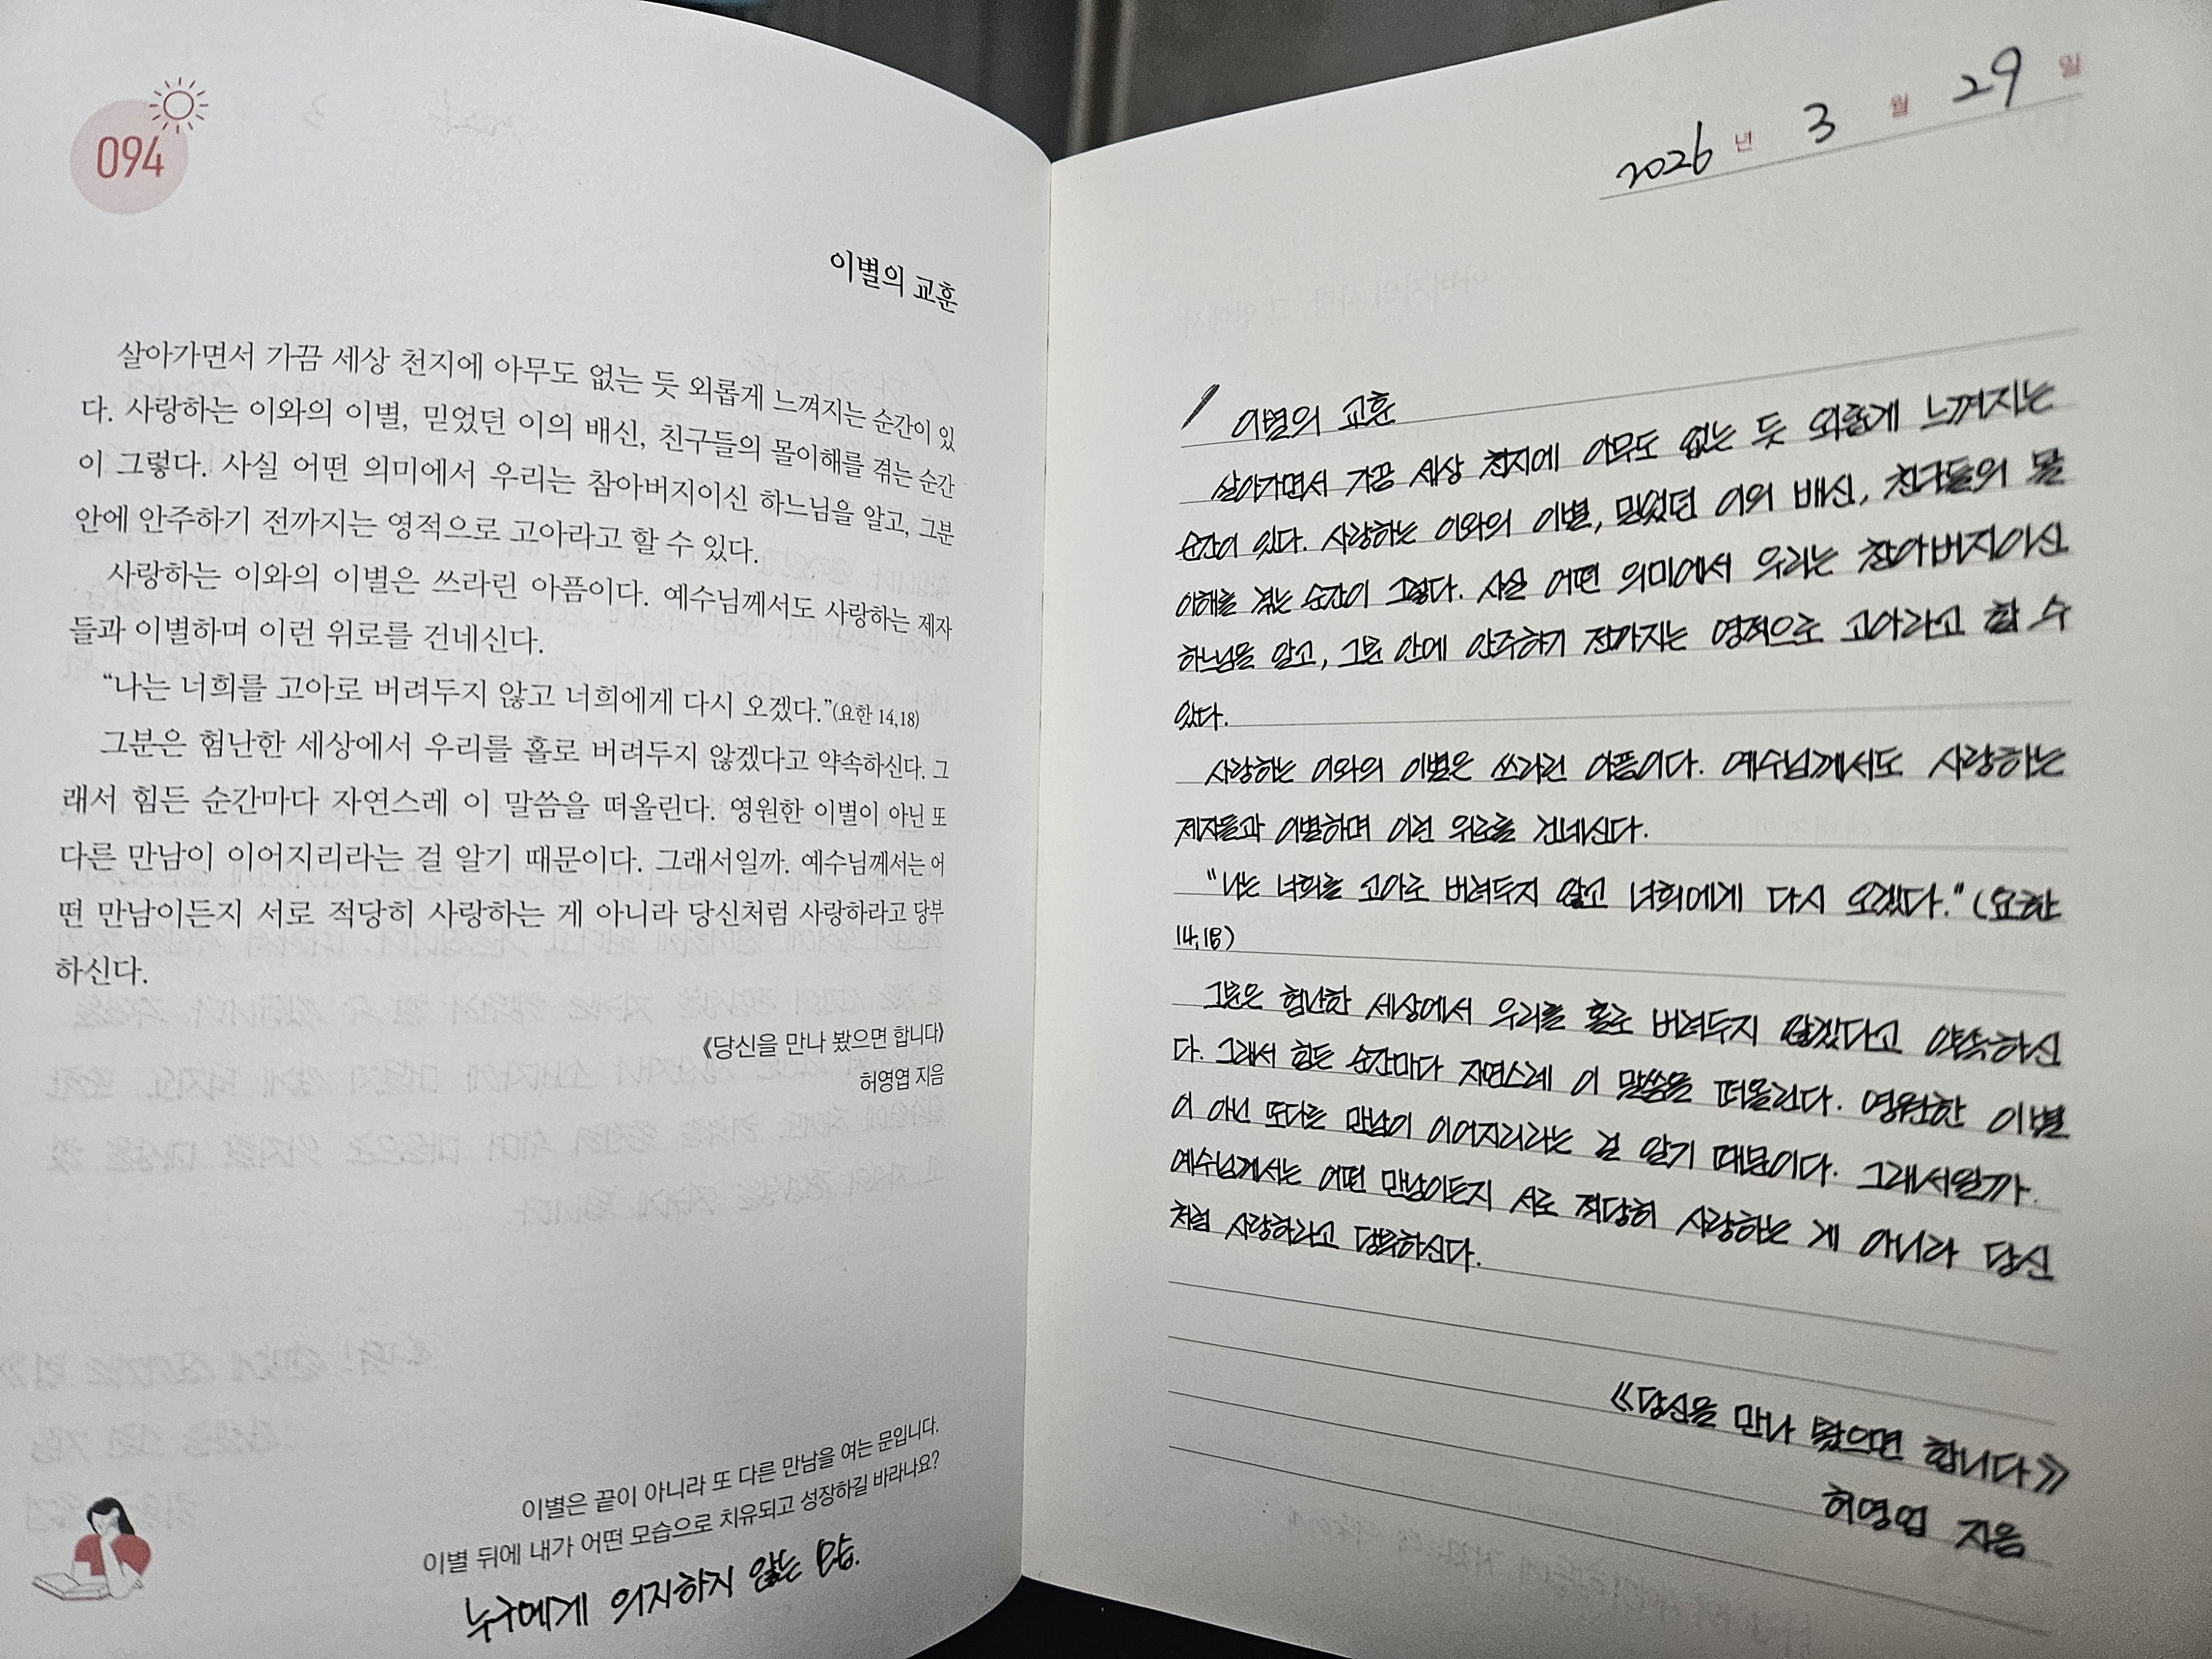 094
이별의 교훈
살아가면서 가끔 세상 천지에 아무도 없는 듯 외롭게 느껴지는 순간이 있
다. 사랑하는 이와의 이별, 믿었던 이의 배신, 친구들의 몰이해를 겪는 순간
이 그렇다. 사실 어떤 의미에서 우리는 참아버지이신 하느님을 알고, 그분
안에 안주하기 전까지는 영적으로 고아라고 할 수 있다.
사랑하는 이와의 이별은 쓰라린 아픔이다. 예수님께서도 사랑하는 제자
들과 이별하며 이런 위로를 건네신다.
“나는 너희를 고아로 버려두지 않고 너희에게 다시 오겠다.”(요한 14,18)
그분은 험난한 세상에서 우리를 홀로 버려두지 않겠다고 약속하신다. 그
래서 힘든 순간마다 자연스레 이 말씀을 떠올린다. 영원한 이별이 아닌 또
다른 만남이 이어지리라는 걸 알기 때문이다. 그래서일까. 예수님께서는 어
떤 만남이든지 서로 적당히 사랑하는 게 아니라 당신처럼 사랑하라고 당부
하신다.
《당신을 만나 봤으면 합니다》
허영엽 지음
이별은 끝이 아니라 또 다른 만남을 여는 문입니다.
이별 뒤에 내가 어떤 모습으로 치유되고 성장하길 바라나요?
누구에게 의지하지 않는 모습.
2026 년 3 월 29 일
이별의 교훈
살아가면서 가끔 세상 천지에 아무도 없는 듯 외롭게 느껴지는
순간이 있다. 사랑하는 이와의 이별, 믿었던 이의 배신, 친구들의 몰
이해를 겪는 순간이 그렇다. 사실 어떤 의미에서 우리는 참아버지이신
하느님을 알고, 그분 안에 안주하기 전까지는 영적으로 고아라고 할 수
있다.
사랑하는 이와의 이별은 쓰라린 아픔이다. 예수님께서도 사랑하는
제자들과 이별하며 이런 위로를 건네신다.
"나는 너희를 고아로 버려두지 않고 너희에게 다시 오겠다." (요한
14,18)
그분은 험난한 세상에서 우리를 홀로 버려두지 않겠다고 약속하신
다. 그래서 힘든 순간마다 자연스레 이 말씀을 떠올린다. 영원한 이별
이 아닌 또다른 만남이 이어지리라는 걸 알기 때문이다. 그래서일까.
예수님께서는 어떤 만남이든지 서로 적당히 사랑하는 게 아니라 당신
처럼 사랑하라고 당부하신다.
《당신을 만나 봤으면 합니다》
허영엽 지음